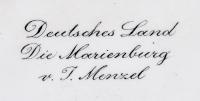 Deutsches Land
Die Marienburg
v. T. Menzel